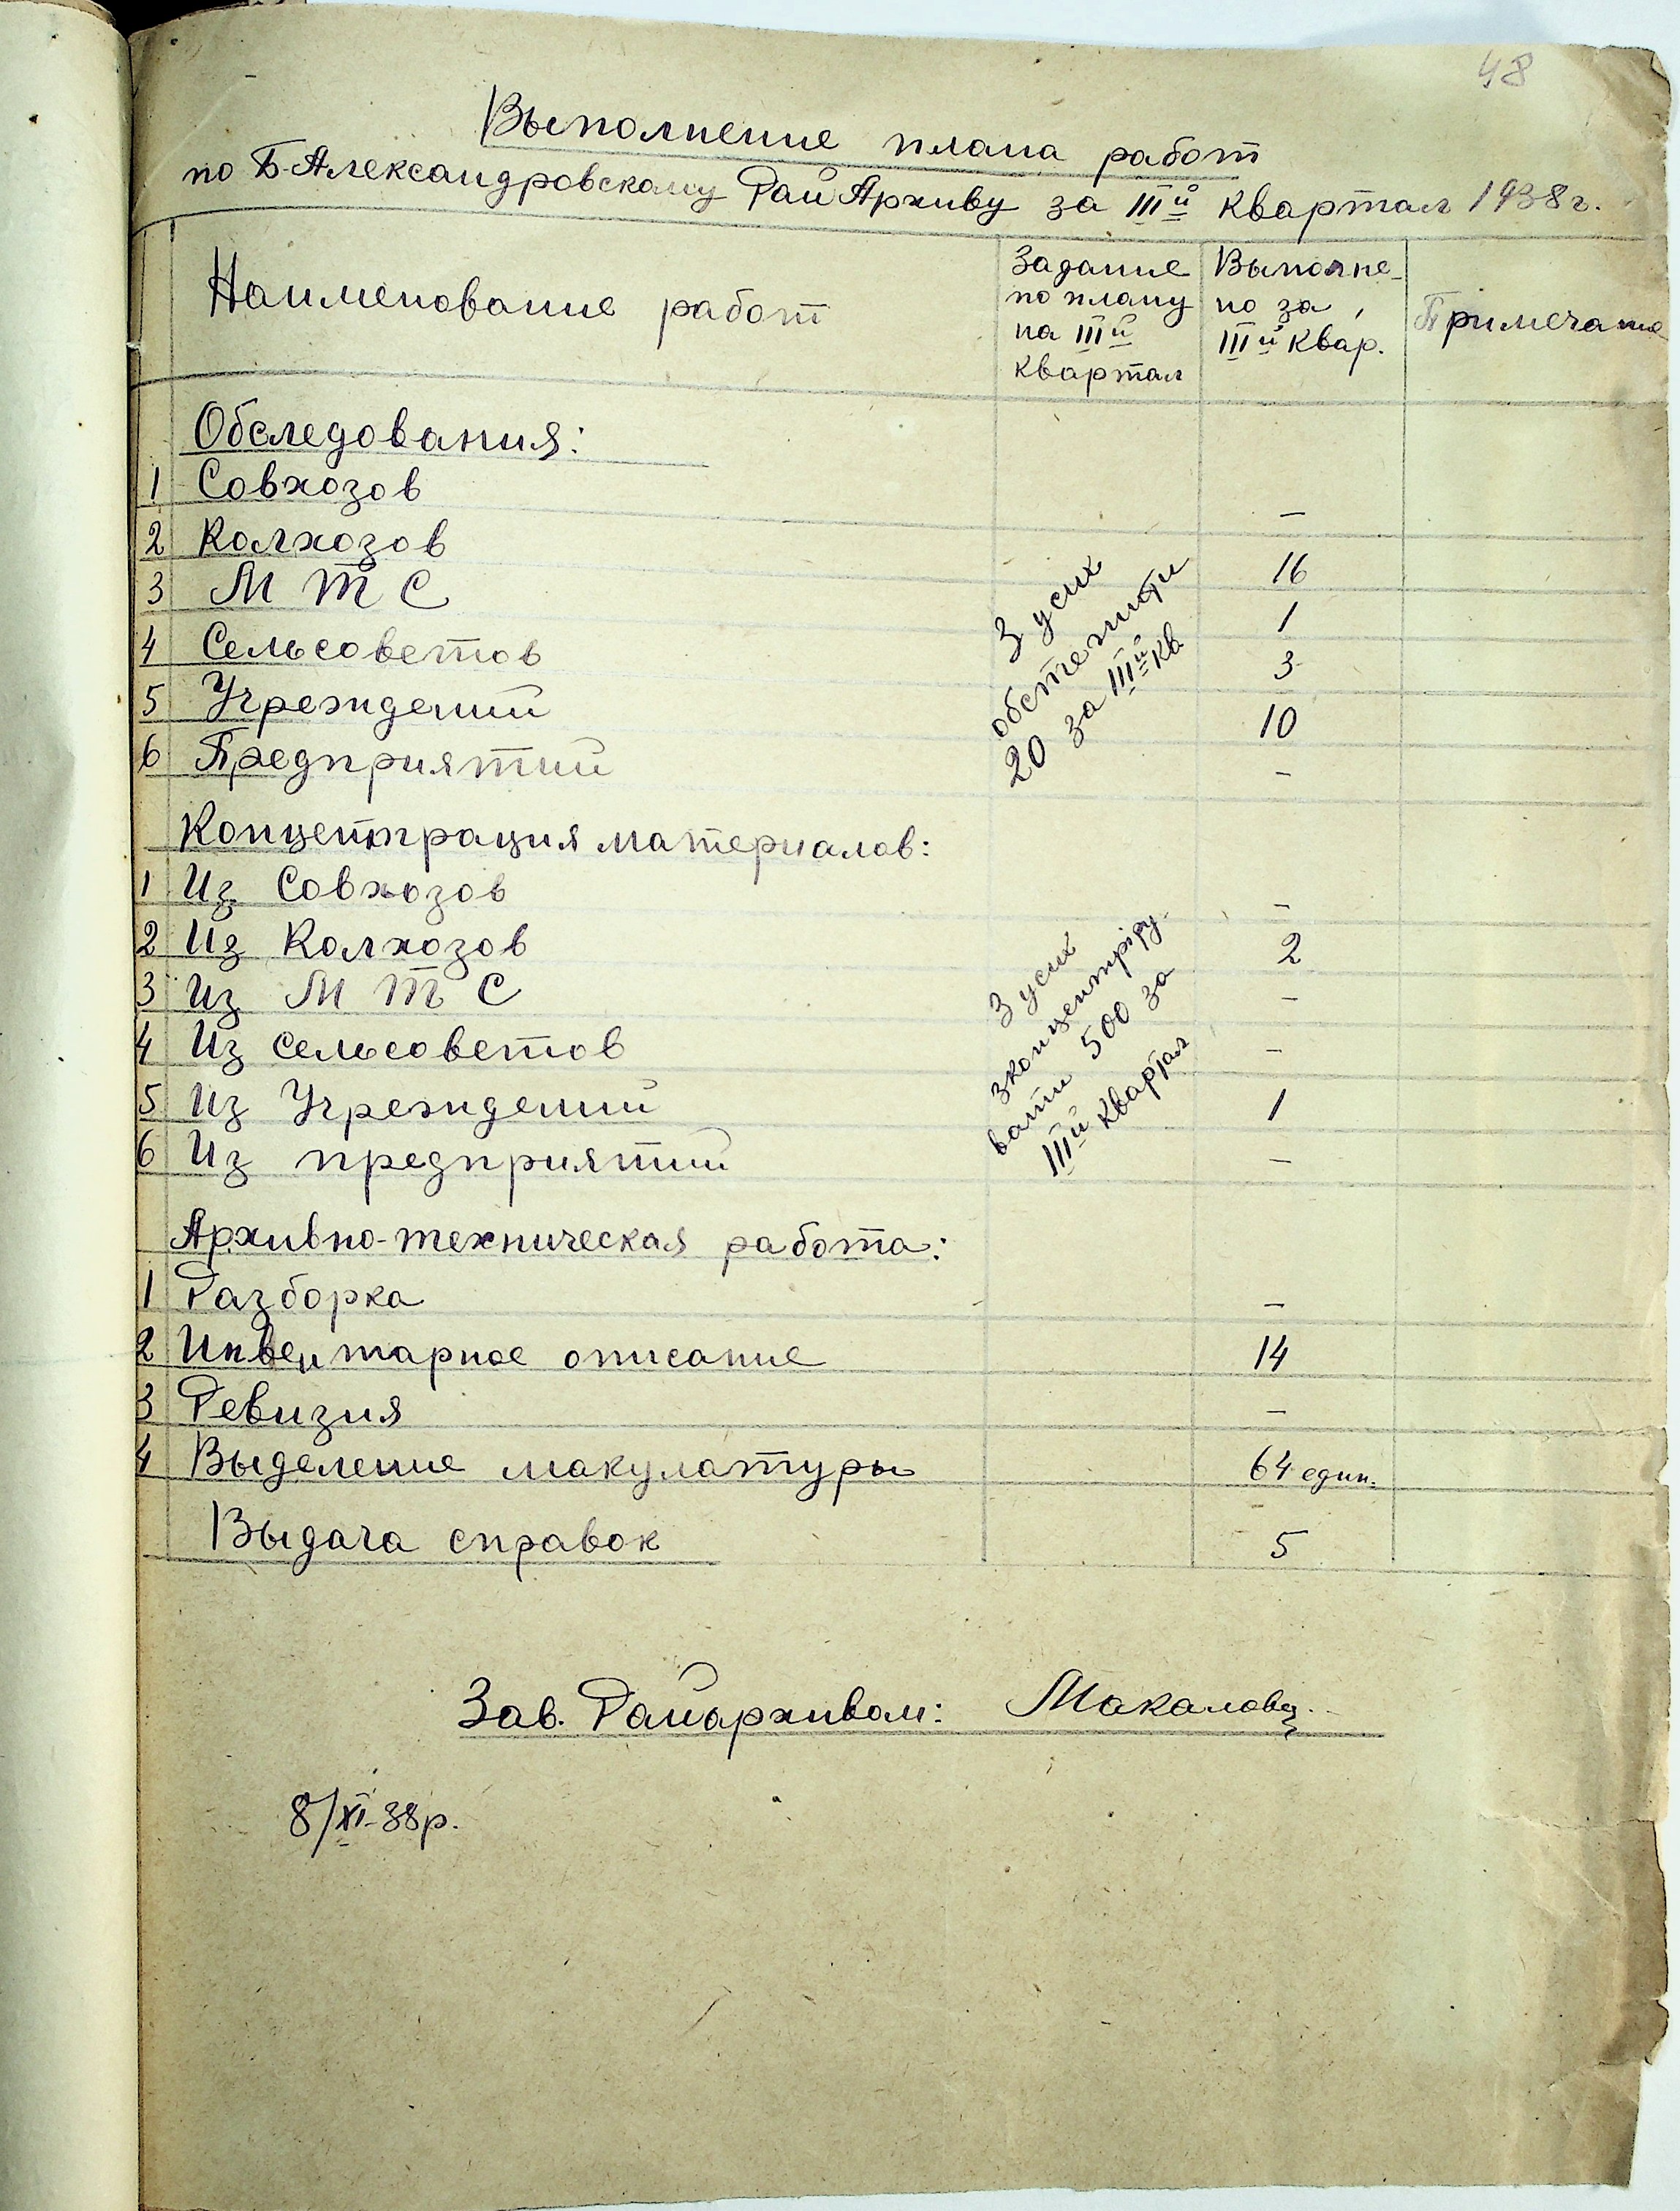 48
Выполнение плана работ
по Б-Александровскому РайАрхиву за IIIй квартал 1938 г.
Наименование работ
Задание по плану на IIIй квартал
Выполне-но за IIIй квар.
Примечание
Обследования:
1 Совхозов –
2 Колхозов 16
3 М Т С 1
4 Сельсоветов 3
5 Учреждений 10
6 Предприятий –
З усих
обстежити
20 за IIIй кв
Концентрация материалов:
1 Из Совхозов –
2 Из Колхозов 2
3 Из М Т С –
4 Из сельсоветов –
5 Из Учреждений 1
6 Из предприятий –
З усих
зконцентріру-
вати 500 за
IIIй квартал
Архивно-техническая работа:
1 Разборка –
2 Инвентарное описание 14
3 Ревизия –
4 Выделение макулатуры 64 един.
Выдача справок 5
Зав. Райархивом:
8/XI-38р.